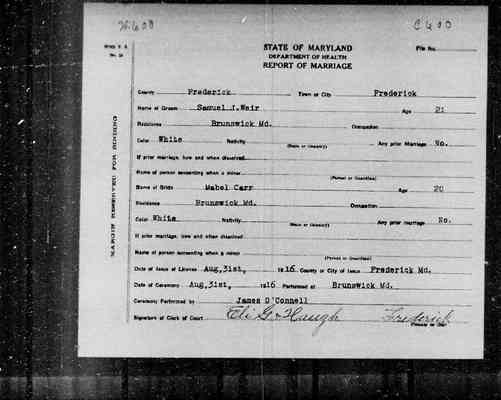 C 600
STATE OF MARYLAND
DEPARTMENT OF HEALTH
REPORT OF MARRIAGE
File No.
MARGIN RESERVED FOR BINDING
County Frederick Town or City Frederick
Name of Groom Samuel J. Weir Age 21
Residence Brunswick Md. Occupation
Color White Nativity (State or Country) Any prior Marriage No.
If prior marriage, how and when dissolved
Name of person consenting when a minor
(Parent or Guardian)
Name of Bride Mabel Carr Age 20
Residence Brunswick Md. Occupation
Color White Nativity (State or Country) Any prior marriage No.
If prior marriage, how and when dissolved
Name of person consenting when a minor
(Parent or Guardian)
Date of Issue of License Aug, 31st, 1916 County or City of Issue Frederick Md.
Date of Ceremony Aug, 31st, 1916 Performed at Brunswick Md.
Ceremony Performed by James O'Connell
Signature of Clerk of Court Eli G. Haugh Frederick